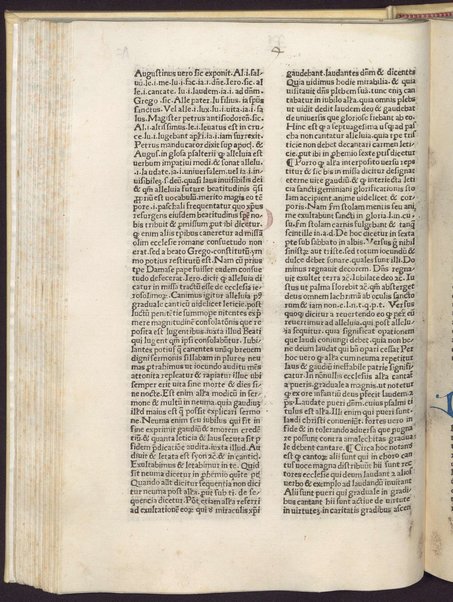 Augustinus uero sic exponit. Al.i.sal
uū.le.i.me.lu.i.fac.ia.i.dñe. Iero. sic al
le.i.cantate. lu.i.laudem.ia.i. ad dñm.
Grego. sic. Alle pater. lu filius. ia spūs
sanctus. Vel. Al.i.lex lu.i.uita ia.i.sa
lus. Magister petrus antisiodoreñ. sic.
Al.i.altissimus. le.i.leuatus est in cru
ce. lu.i.lugebant apłi. ia.i.iam surrexit.
Petrus manducator dixit sup apoc. &
August. in glosa psalterii qp alleluia est
uerbum impatiui modi & sonat allelu
.i.laudate. ia.i.uniuersalem. uel ia.i.in
uisibilez. s. deū. quasi laus inuisibilis dei
& qm̄ alleluia future beatitudinis qsi
pꝛium est uocabulū. merito magis eo tē
poꝛe.i. paschali frequentatur quo xpus
resurgens eiusdem beatitudinis spē no
bis tribuit & pmissum put ibi dicitur.
qp enim aliis tpibus caneretur ad missa
olim ecclesie romane consuetudo non
erat. sed a beato Grego. constitutū. ym
mo potius restitutū est. Nam eū prius
tpe Damasi pape fuisset eadem consue
tudo decerat. Iero. dicit qp alleluia di
catur in missa tractū esse de ecclesia ie
rosolimoꝝ. Canimus igitur alleluia pꝰ
graduale cantici leticiam post luctū pe
nitētie summope nitentes expri
mere magnitudinē consolatois que re
posita est lugentibus. iuxta illud Beati
qui lugent qm̄ ipsi consolabuntur. Iu
bilantes potius qꝫ canentes unūqꝫ breuem
dignū sermonis sillabam in plures neu
mas ptrahimus ut iocundo auditu mēs
attonita repleatur & rapiatur illuc ubi
semper erit uita sine morte & dies si
ne nocte. Est enim alla modicū in ser
mone & multū in neuma. quia gaudiū
illd maius est qꝫ possit explicari sermo
ne. Neuma seu iubilus qui fit in
fine exprimit gaudiū & amorem credē
tiū & quanta leticia & laus secuta sit p
sidem pdicatōne audita iuxta illud. Au
diuit & letata est syon zc̄ & in cantici.
Exultabimus & letabimur in te. Quid
sit neuma dicetur in phemio quite pt̄.
Quando aūt dicitur sequentia non dici
tur neuma post alla. put sub ti. de se
quencia dicetur. Pert etiam alla referri
ad exultatōnem eoꝝ. qui ꝺ miraculis xpi
gaudebant. laudantes dñm & dicentes
Quia uidimus hodie mirabilia & quia
uisitauit dñs plebem suā. tunc enim can
tabatur in iubilo alla. quia omnis plebs
ut uidit dedit laudem deo & gaudebat
de uniuersis que gloriose fiebant ab eo
Hinc est qp a septuagesima usqꝫ ad pa
scha non cantatur alleluia. quia tpe tri
sticie non debet decantari carmen leti
cie. put ibi in phemio sexte ptis dicetur
¶ Porro qp alla interposito uersu repe
titur & sic bis in missa dicitur. designat
eterne uite gaudiū & qp interiecta leti
cia sancti geminati glorificationis sto
lam accipient anime uidelicet & cor
poris. Nam ꝑ m stolam meniū seu ani
me exultabunt sancti in gloria. In cu
su. ꝑm stolam carnis fulgebunt & tanqꝫ
scintille in a. d. De hoc dicetur in sexta
pte sub sabbato in albis. Versus qꝫ nihil
finistruz aut triste sed totum iocundū &
dulce debet sonare. quales sunt illi. Do
minus regnauit decorem. Dñs regna
uit exultet terra zc̄. Iubilate deo zc̄. Iu
stus ut palma florebit zc̄. abstergeret
deus omnem lachrimā ab oculis sancto
rum & iam non e. l. n. t. q. p. t. Versus
quoqꝫ dicitur a reuertendo eo qp post ipm
reuertimur ad alleluia. qui pot̄ alla
bis sequitur. quia significat opationem
que laudi coniungi debet. quia non be
ne laudat qui ab opere uacat. Per hoc
autem qp post alla cum neuma repetitur
laus & gaudiū ineffabile patrie signifi
catur. In nōnullis ecclesiis alla cantat
a pueris. graduale a magnis. ut notetur
qp ex ore infantiū deus psecit laudem
pz. Laudate pueri dñm. cuius psalmi ti
tulus est alla. Illi enim qui pueri sunt
laudi christi conueniūt. fortes uero in
fide & in tolerando aduersa que pugna
re possunt contra amalechitas gradus
ea debent cantare. ¶ Circa hoc notand
est qp cantor alii sunt qui in choro can
tui uoce magna distribuit hii sunt rec
tores ecclesie qui deum laudant a alios
uerbo & exemplo ad laudandū inuitant
Alii sunt pueri qui graduale in gradi
bus cantant hii sunt actiue de uirtute
in uirtutez. in caritatis gradibus ascen